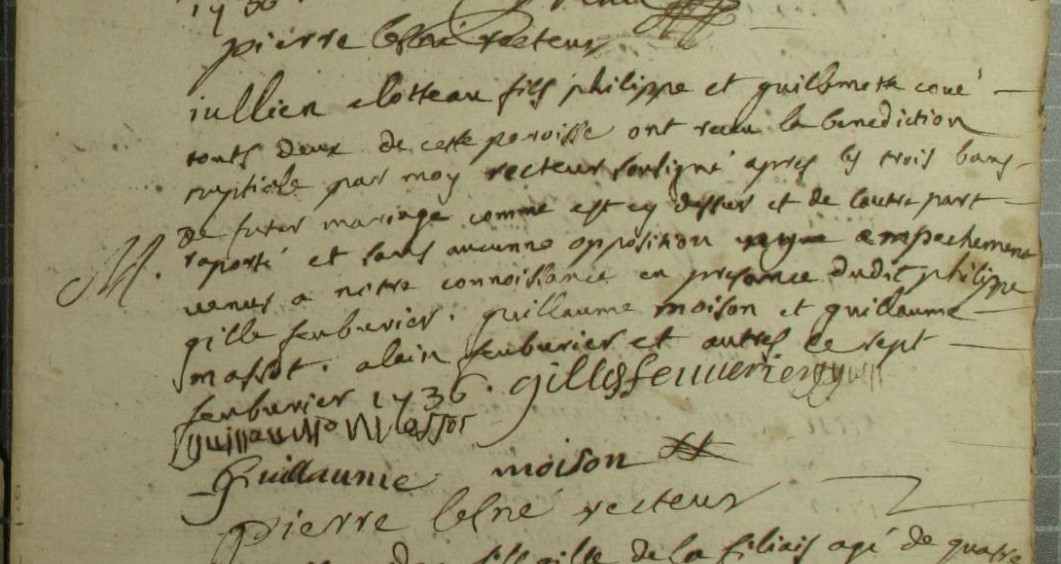 1736.
pierre lesné recteur
iullien clotteau fils philippe et guillemette coué
touts deux de cette paroisse ont receu la benediction
nuptialle par moy recteur soussigné apres les trois bans
de futur mariage comme est cy dessus et de l'autre part
M. raporté et sans aucunne opposition ny empechement
venus a notre connoissance en presance dudit philippe
gille feuburier. guillaume moison et guillaume
massot. alain feuburier et autres ce sept
feuburier 1736. gilles feuuerier
guillaume Massot
Guillaume moison
pierre lesné recteur
fils gille de la filiais agé de quatre